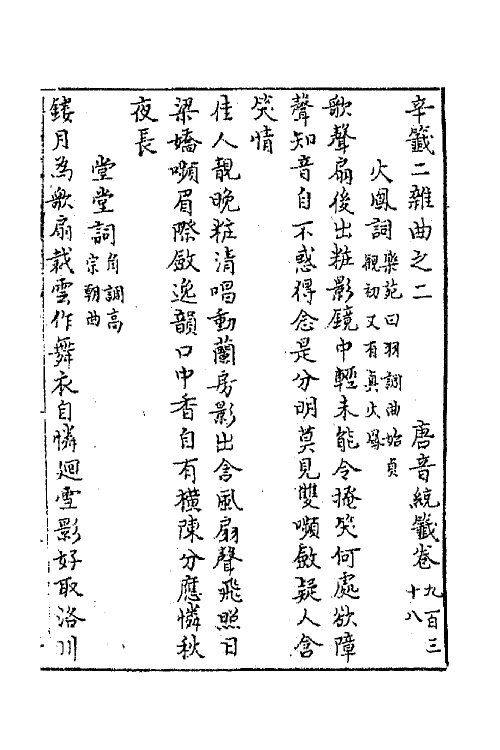 辛籤二雜曲之二　唐音統籤卷九百三十八
火鳳詞樂苑曰羽調曲始貞觀初又有真火鳳
歌聲扇後出粧影鏡中輕未能令掩笑何處欲障
聲知音自不惑得念是分明莫見雙嚬斂疑人含
笑情
佳人靚晩粧清唱動蘭房影出含風扇聲飛照日
梁嬌嚬眉際斂逸韻口中香自有橫陳分應憐秋
夜長
堂堂詞角調高宗朝曲
鏤月為歌扇裁雲作舞衣自憐迴雪影好取洛川